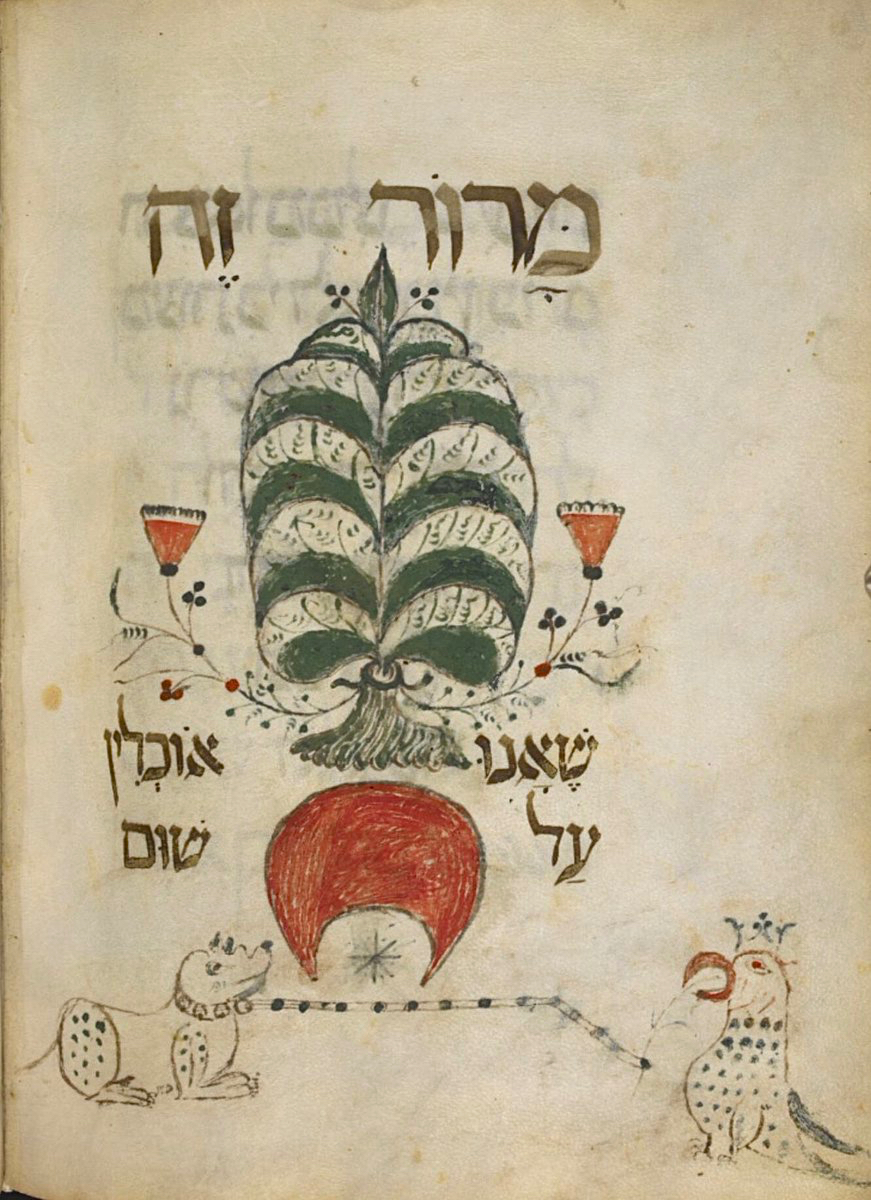 מָּרוֹר זֶה
שֶׁאָנוּ אוֹכְלִין
עַל שׁוּם